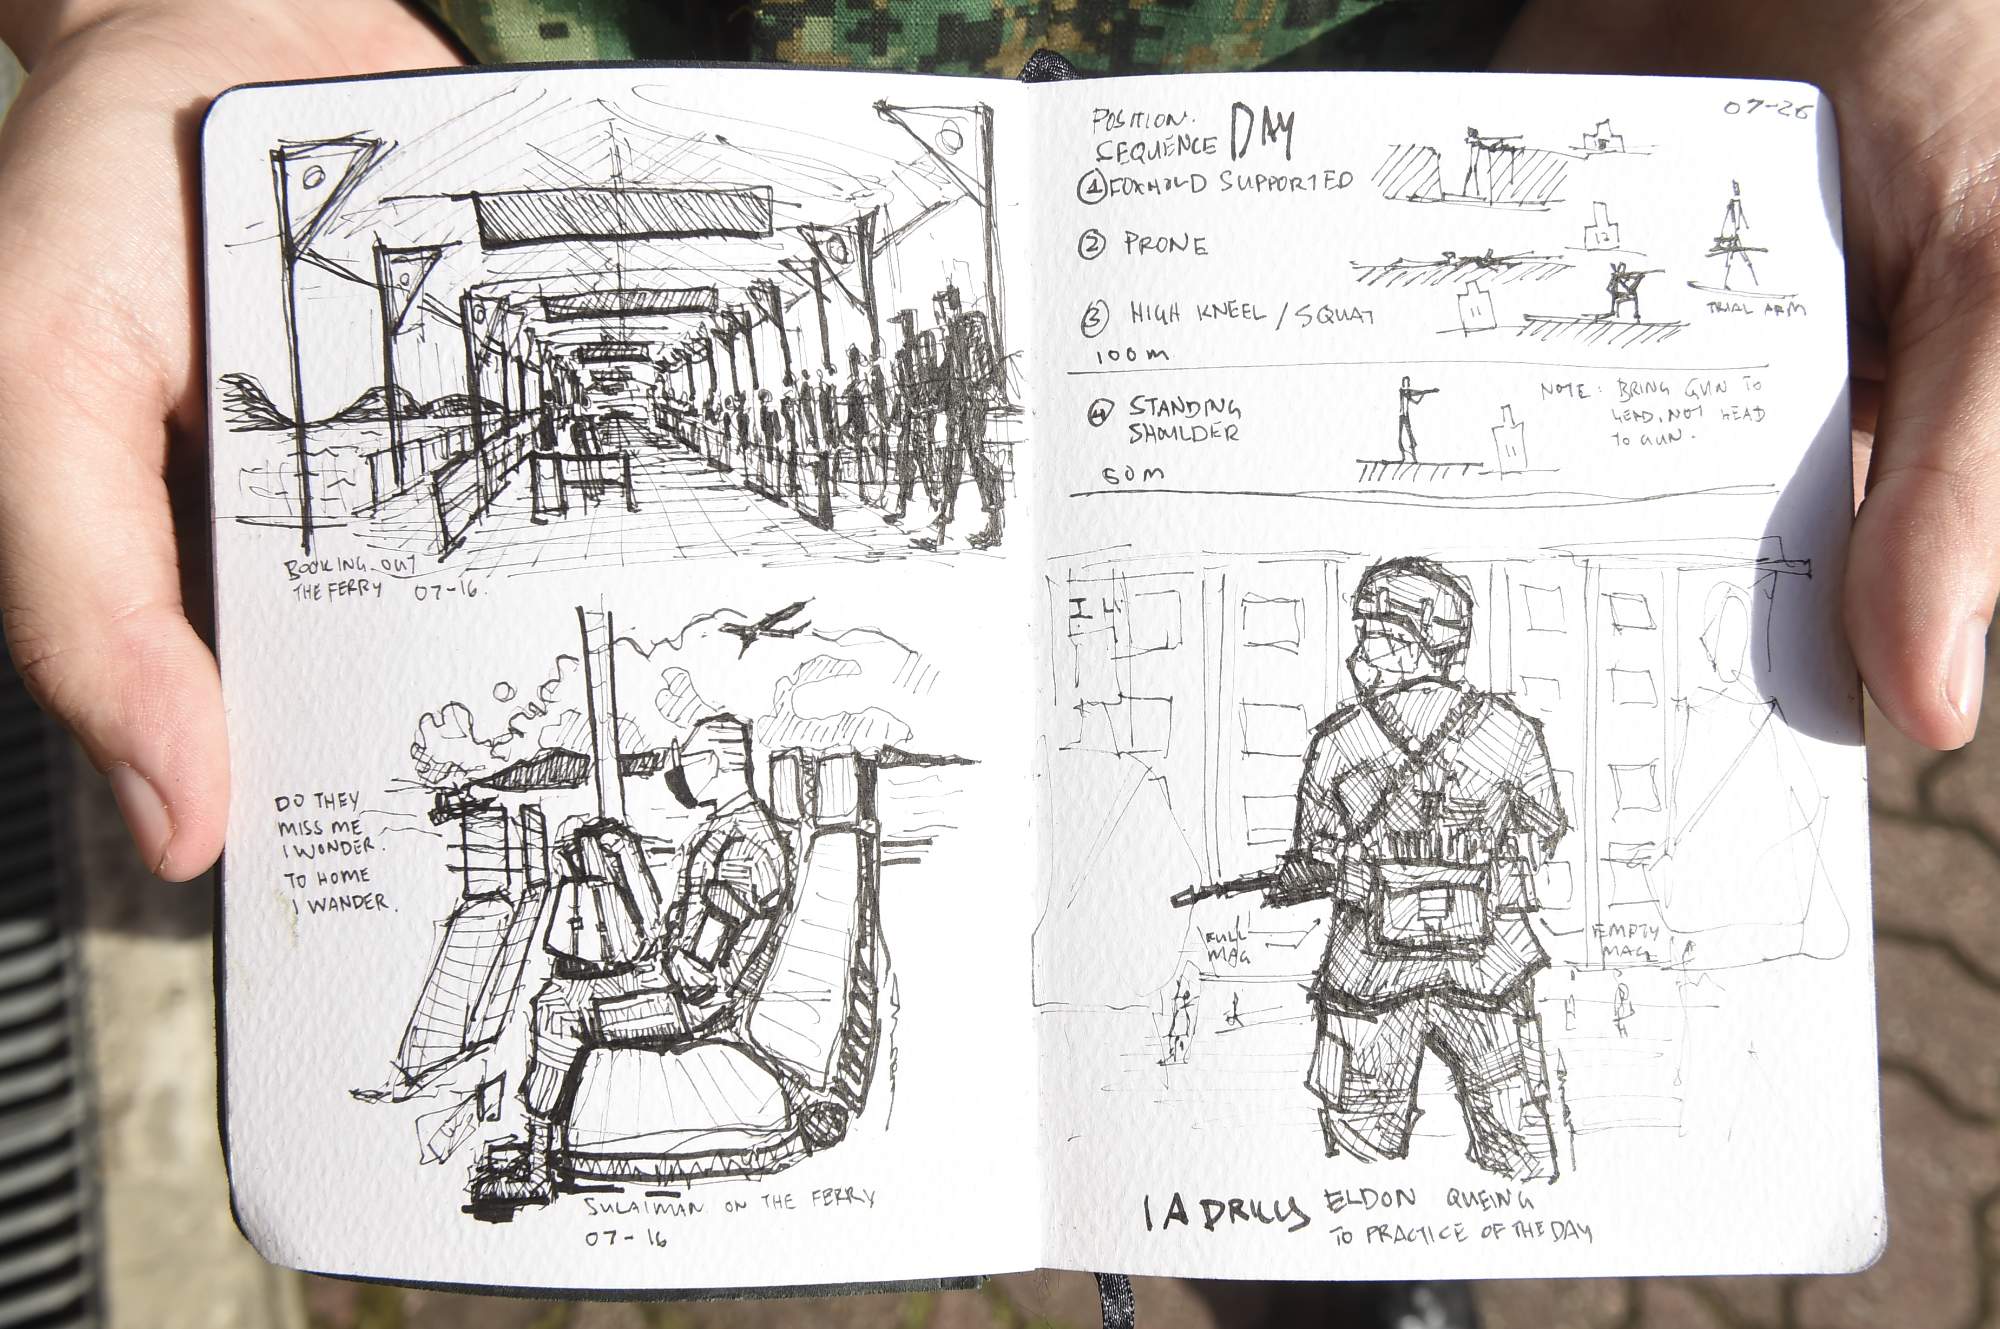 BOOKING OUT
THE FERRY 07-16.
DO THEY
MISS ME
I WONDER.
TO HOME
I WANDER.
SULAIMAN ON THE FERRY
07-16
07-26
POSITION.
SEQUENCE DAY
1 FOXHOLD SUPPORTED
2 PRONE
12
3 HIGH KNEEL / SQUAT
11
TRIAL ARM
100m
4 STANDING
SHOULDER
50m
11
NOTE: BRING GUN TO
HEAD, NOT HEAD
TO GUN.
FULL
MAG
EMPTY
MAG
IA DRILLS ELDON QUEING
TO PRACTICE OF THE DAY